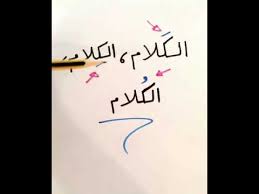 الكَلام، الكِلام،
الكُلام